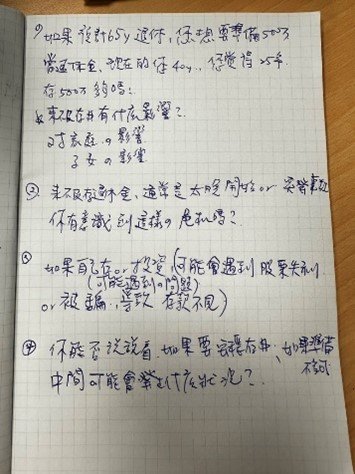 ① 如果設計65y退休，你想要準備500万
當退休金，現在的你40y，你覺得25年
存500万夠嗎？
來不及存有什麼影響？
對家庭の影響
子女の影響
② 來不及存退休金，通常是太晚開始or
你有意識到這樣の危机嗎？
③ 如果自存or投資，(可能會遇到股票失利
(可能遇到の問題)
or被騙，導致存款不見)
④ 你能否說說看，如果要安穩存好、如果準備
不夠
中間可能會發生什麼狀況？